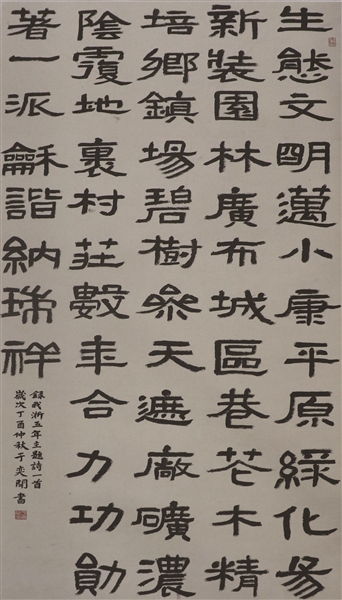 生態文明邁小康平原綠化易
新裝園林廣布城區巷花木精
培鄉鎮場碧樹參天遮廠礦濃
陰覆地裏村莊數年合力功勛
著一派龢諧納瑞祥
錄我浙五年主題詩一首
歲次丁酉仲秋于奕聞書